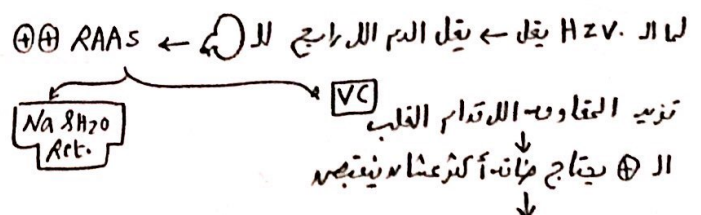 لما الـ H2V. يقل ← يقل الدم اللي رايح للـ ← RAAS ⊕⊕
VC
Na & H2O
Ret.
تزيد المقاومة اللي قدام القلب
↓
الـ ⊕ يحتاج طاقة أكتر عشان ينقبض
↓